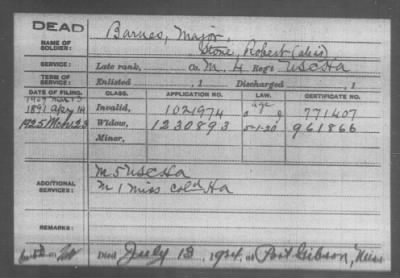 DEAD
NAME OF SOLDIER: Barnes, Major,
Stone, Robert (alias)
SERVICE: Late rank, Co. M, 4 Reg't USCHa
TERM OF SERVICE: Enlisted , 1 Discharged , 1
DATE OF FILING. CLASS. APPLICATION NO. LAW. CERTIFICATE NO.
Invalid, 1021974 age 771407
1891 14
1925 Mar 23 Widow, 1230893 5-1-20 961866
Minor,
ADDITIONAL SERVICES: M 5 USCHa
M 1 Miss Col'd Ha
REMARKS:
Died July 13, 1924, at Port Gibson, Miss